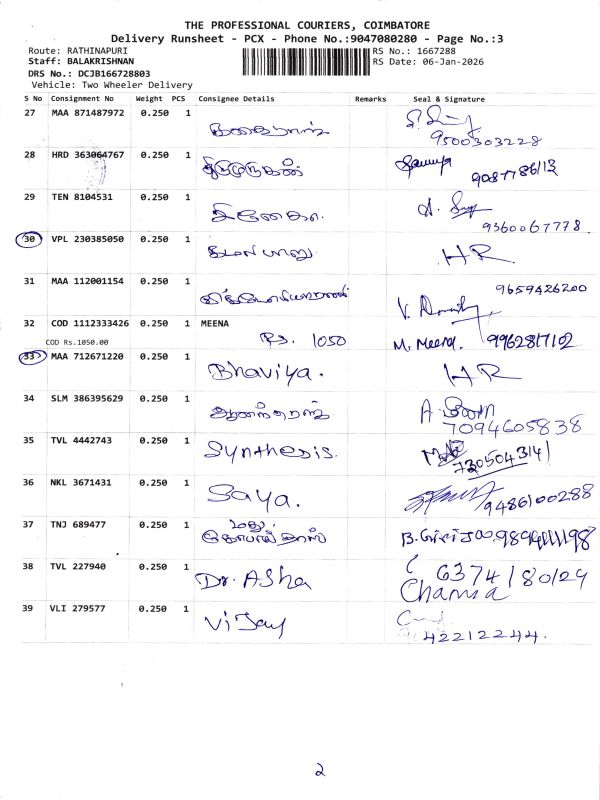 THE PROFESSIONAL COURIERS, COIMBATORE
Delivery Runsheet - PCX - Phone No.:9047080280 - Page No.:3
Route: RATHINAPURI RS No.: 1667288
Staff: BALAKRISHNAN RS Date: 06-Jan-2026
DRS No.: DCJB166728803
Vehicle: Two Wheeler Delivery
S No Consignment No Weight PCS Consignee Details Remarks Seal & Signature
27 MAA 871487972 0.250 1
9500303228
28 HRD 363064767 0.250 1 திருமுருகன்
9087786113
29 TEN 8104531 0.250 1
9360067778.
30 VPL 230385050 0.250 1 HR
31 MAA 112001154 0.250 1 9659426200
32 COD 1112333426 0.250 1 MEENA
COD Rs.1050.00 Rs. 1050 M. Meena. 9962817102
33 MAA 712671220 0.250 1 Bhaviya. HR
34 SLM 386395629 0.250 1 ஆனந்தராஜ்
7094605838
35 TVL 4442743 0.250 1 Synthesis.
7305043141
36 NKL 3671431 0.250 1 Saya. 9486100288
37 TNJ 689477 0.250 1 மது
கோபால் தாஸ்
38 TVL 227940 0.250 1 Dr. Asha 6374180129
39 VLI 279577 0.250 1 Vijay
42212244.
2